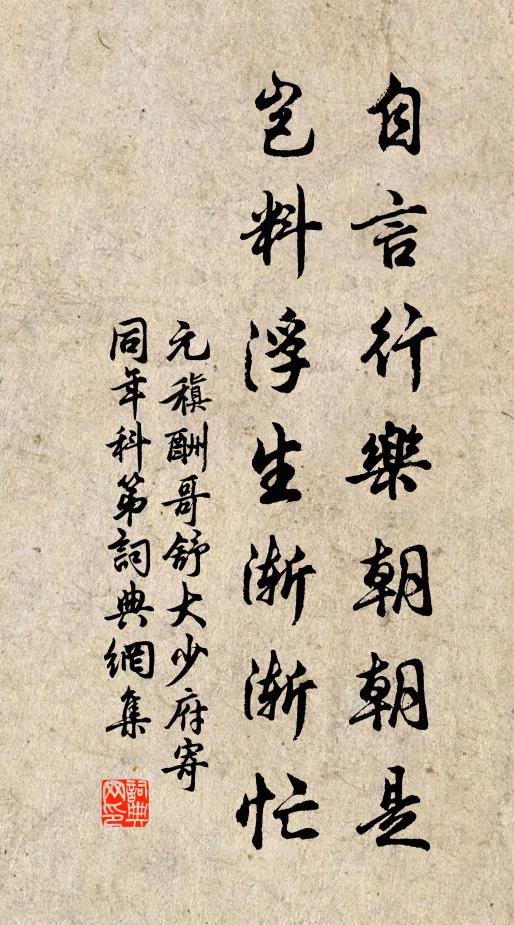 自言行樂朝朝是
豈料浮生漸漸忙
元稹酬哥舒大少府寄
同年科第詞典網集
詞典網印